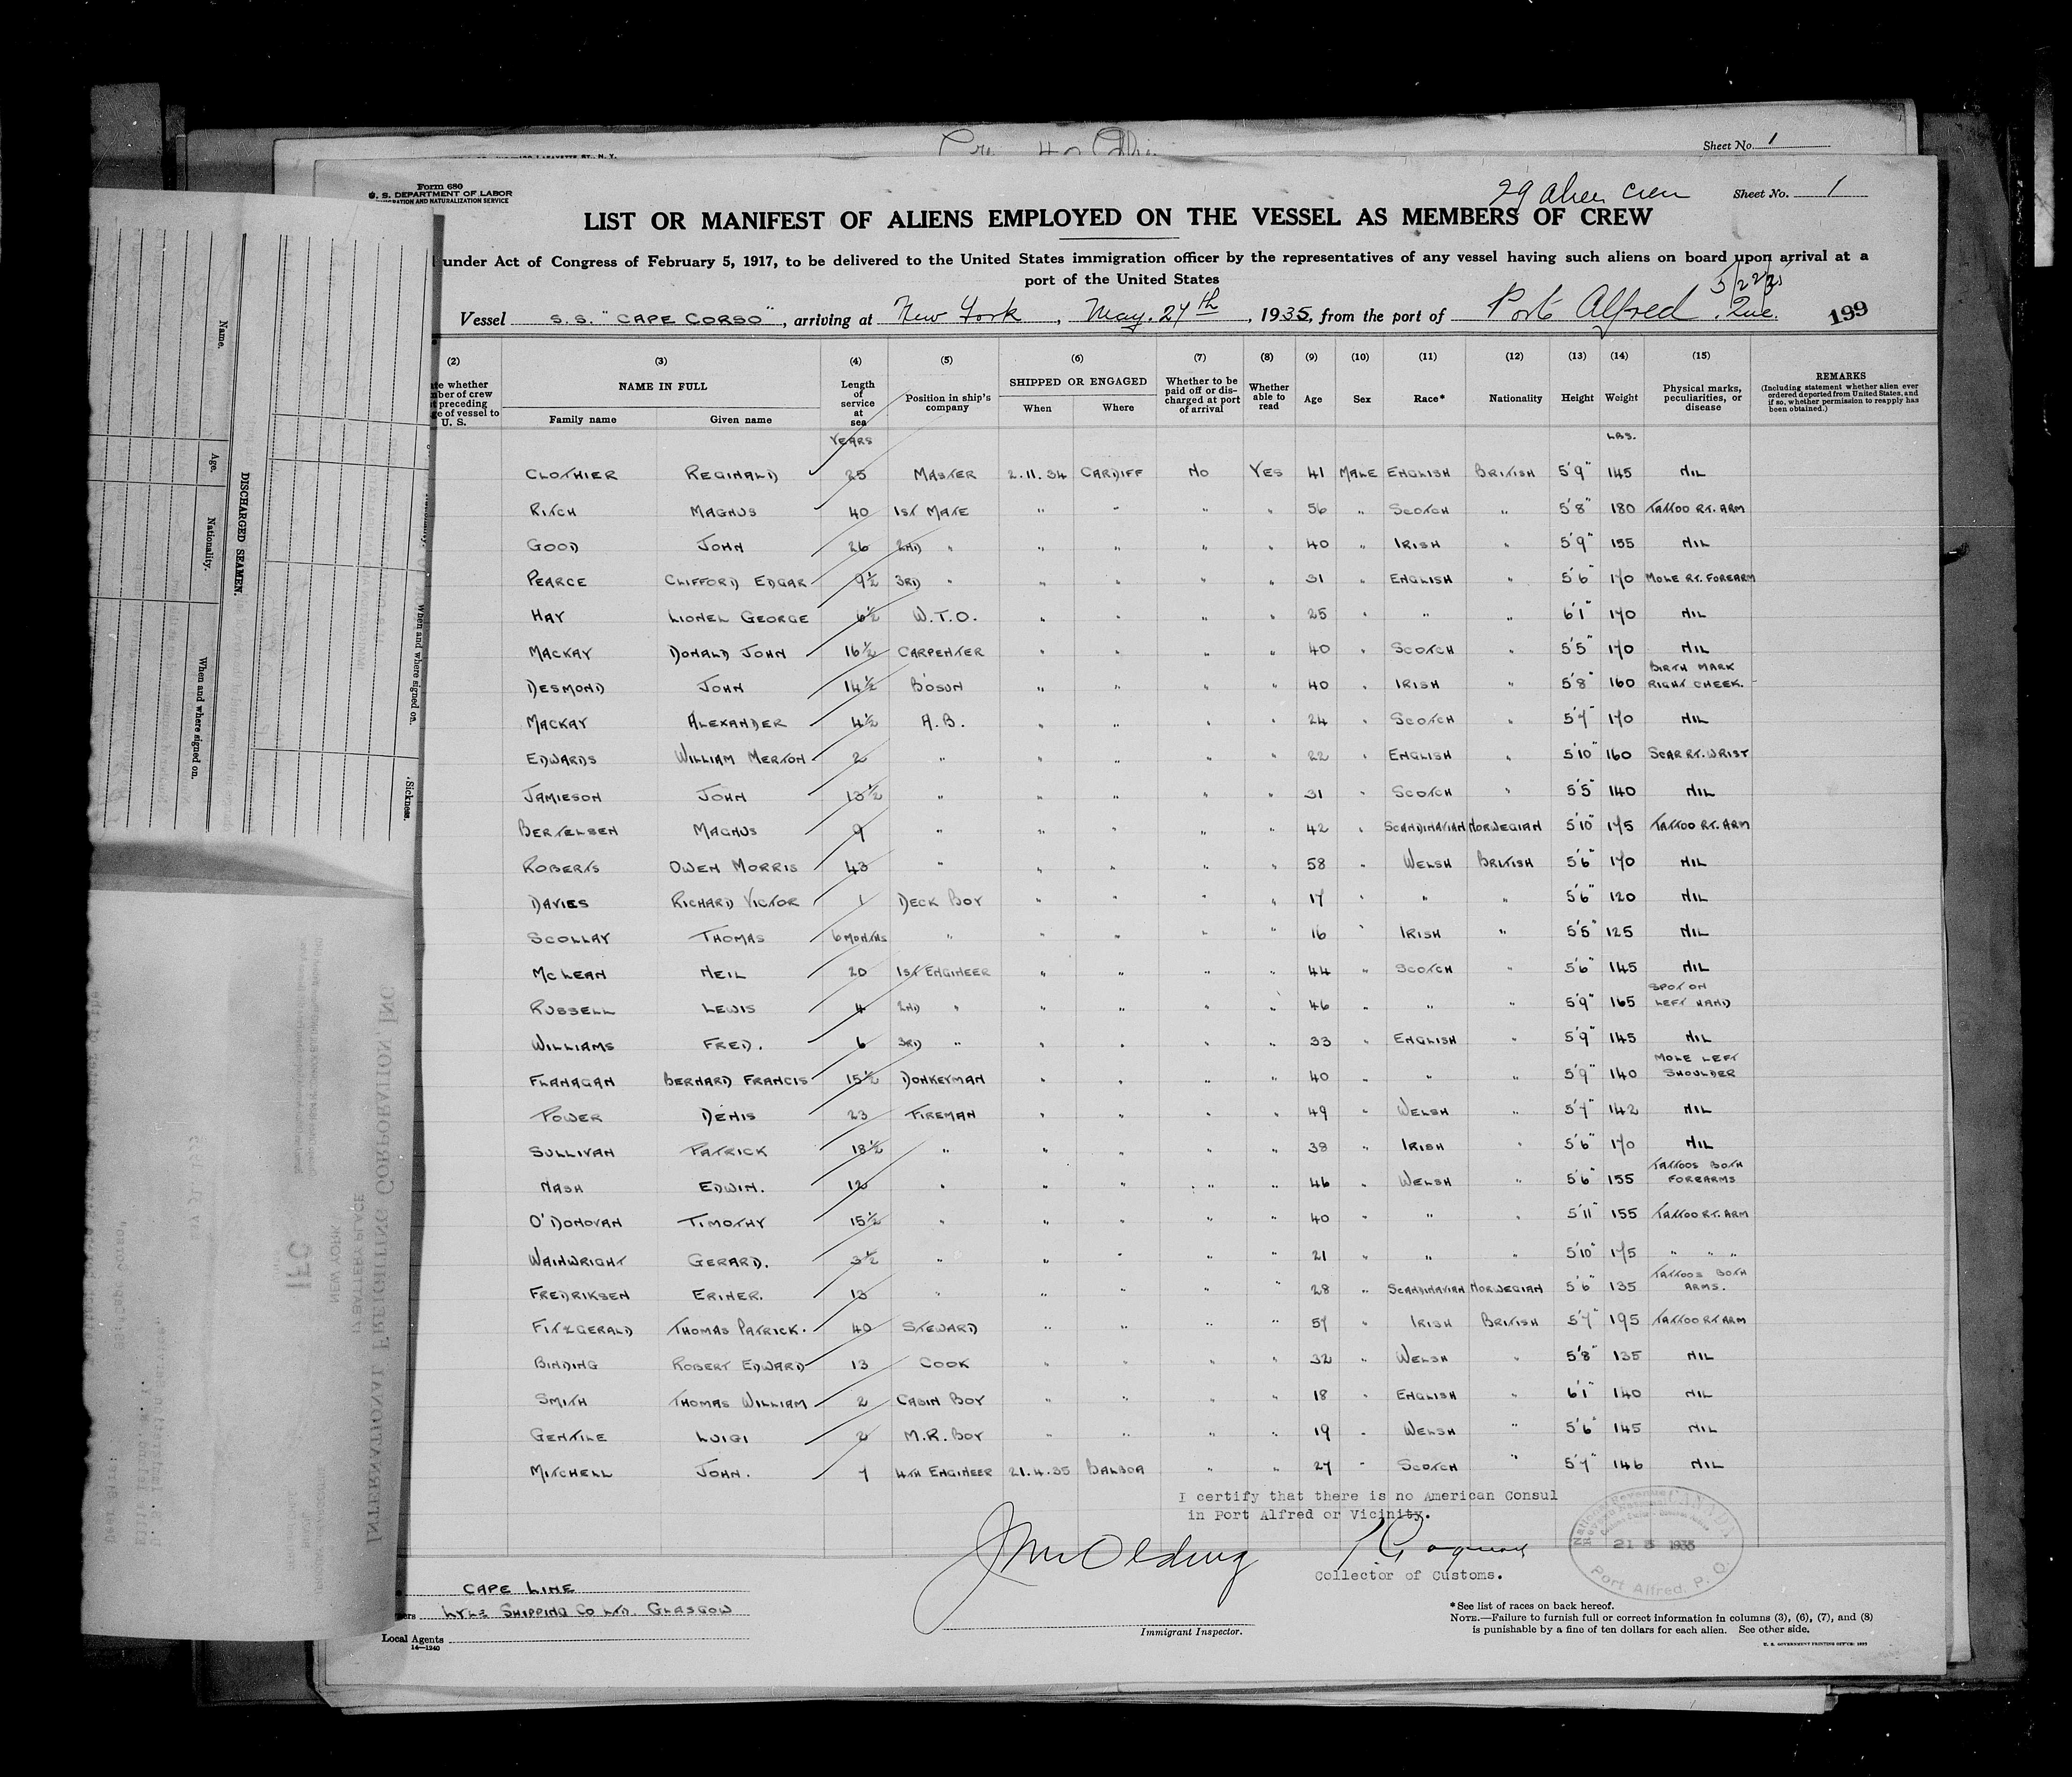 Sheet No. 1
Form 680
U. S. DEPARTMENT OF LABOR
IMMIGRATION AND NATURALIZATION SERVICE
29 Alien Crew
Sheet No. 1
LIST OR MANIFEST OF ALIENS EMPLOYED ON THE VESSEL AS MEMBERS OF CREW
under Act of Congress of February 5, 1917, to be delivered to the United States immigration officer by the representatives of any vessel having such aliens on board upon arrival at a
port of the United States
Vessel S.S. "CAPE CORSO", arriving at New York, May. 27th, 1935, from the port of Port Alfred. Que. 199
(2) (3) (4) (5) (6) (7) (8) (9) (10) (11) (12) (13) (14) (15)
NAME IN FULL Family name Given name Length of service at sea Position in ship's company SHIPPED OR ENGAGED When Where Whether to be paid off or discharged at port of arrival Whether able to read Age Sex Race* Nationality Height Weight Physical marks, peculiarities, or disease REMARKS (Including statement whether alien ever ordered deported from United States, and if so, whether permission to reapply has been obtained.)
YEARS LBS.
CLOTHIER REGINALD 25 MASTER 2.11.34 CARDIFF NO YES 41 MALE ENGLISH BRITISH 5'9" 145 NIL
RITCH MAGNUS 40 1ST MATE " " " " 56 " SCOTCH " 5'8" 180 TATTOO RT. ARM
GOOD JOHN 26 2ND " " " " " 40 " IRISH " 5'9" 155 NIL
PEARCE CLIFFORD EDGAR 9½ 3RD " " " " " 31 " ENGLISH " 5'6" 170 MOLE RT. FOREARM
HAY LIONEL GEORGE 6½ W.T.O. " " " " 25 " " " 6'1" 170 NIL
MACKAY DONALD JOHN 16½ CARPENTER " " " " 40 " SCOTCH " 5'5" 170 NIL
DESMOND JOHN 14½ BOSUN " " " " 40 " IRISH " 5'8" 160 BIRTH MARK RIGHT CHEEK.
MACKAY ALEXANDER 4½ A.B. " " " " 24 " SCOTCH " 5'7" 170 NIL
EDWARDS WILLIAM MERTON 2 " " " " " 22 " ENGLISH " 5'10" 160 SCAR RT. WRIST
JAMIESON JOHN 13½ " " " " " 31 " SCOTCH " 5'5" 140 NIL
BERTELSEN MAGNUS 9 " " " " " 42 " SCANDINAVIAN NORWEGIAN 5'10" 175 TATTOO RT. ARM
ROBERTS OWEN MORRIS 43 " " " " " 58 " WELSH BRITISH 5'6" 170 NIL
DAVIES RICHARD VICTOR 1 DECK BOY " " " " 17 " " " 5'6" 120 NIL
SCOLLAY THOMAS 6 MONTHS " " " " " 16 " IRISH " 5'5" 125 NIL
MCLEAN NEIL 20 1ST ENGINEER " " " " 44 " SCOTCH " 5'6" 145 NIL
RUSSELL LEWIS 4 2ND " " " " " 46 " " " 5'9" 165 SPOT ON LEFT HAND
WILLIAMS FRED. 6 3RD " " " " " 33 " ENGLISH " 5'9" 145 NIL
FLANAGAN BERNARD FRANCIS 15½ DONKEYMAN " " " " 40 " " " 5'9" 140 MOLE LEFT SHOULDER
POWER DENIS 23 FIREMAN " " " " 49 " WELSH " 5'7" 142 NIL
SULLIVAN PATRICK 18½ " " " " " 38 " IRISH " 5'6" 170 NIL
NASH EDWIN. 12 " " " " " 46 " WELSH " 5'6" 155 TATTOOS BOTH FOREARMS
O'DONOVAN TIMOTHY 15½ " " " " " 40 " " " 5'11" 155 TATTOO RT. ARM
WAINWRIGHT GERARD. 3½ " " " " " 21 " " " 5'10" 175 " " "
FREDRIKSEN ERINER. 13 " " " " " 28 " SCANDINAVIAN NORWEGIAN 5'6" 135 TATTOOS BOTH ARMS.
FITZGERALD THOMAS PATRICK. 40 STEWARD " " " " 57 " IRISH BRITISH 5'7" 195 TATTOO RT ARM
BINDING ROBERT EDWARD 13 COOK " " " " 32 " WELSH " 5'8" 135 NIL
SMITH THOMAS WILLIAM 2 CABIN BOY " " " " 18 " ENGLISH " 6'1" 140 NIL
GENTILE LUIGI 2 M.R. BOY " " " " 19 " WELSH " 5'6" 145 NIL
MITCHELL JOHN. 7 4TH ENGINEER 21.4.35 BALBOA " " 27 " SCOTCH " 5'7" 146 NIL
I certify that there is no American Consul
in Port Alfred or Vicinity.
Collector of Customs.
CANADA
21 5 1935
Port Alfred, P. Q.
CAPE LINE
LYLE SHIPPING CO LTD. GLASGOW
Local Agents
14—1240
Immigrant Inspector.
*See list of races on back hereof.
NOTE.—Failure to furnish full or correct information in columns (3), (6), (7), and (8)
is punishable by a fine of ten dollars for each alien. See other side.
DISCHARGED SEAMEN.
Name.
Age.
Nationality.
When and where signed on.
When and where signed on.
Sickness.
INTERNATIONAL FREIGHTING CORPORATION, INC
17 BATTERY PLACE
NEW YORK
IFC